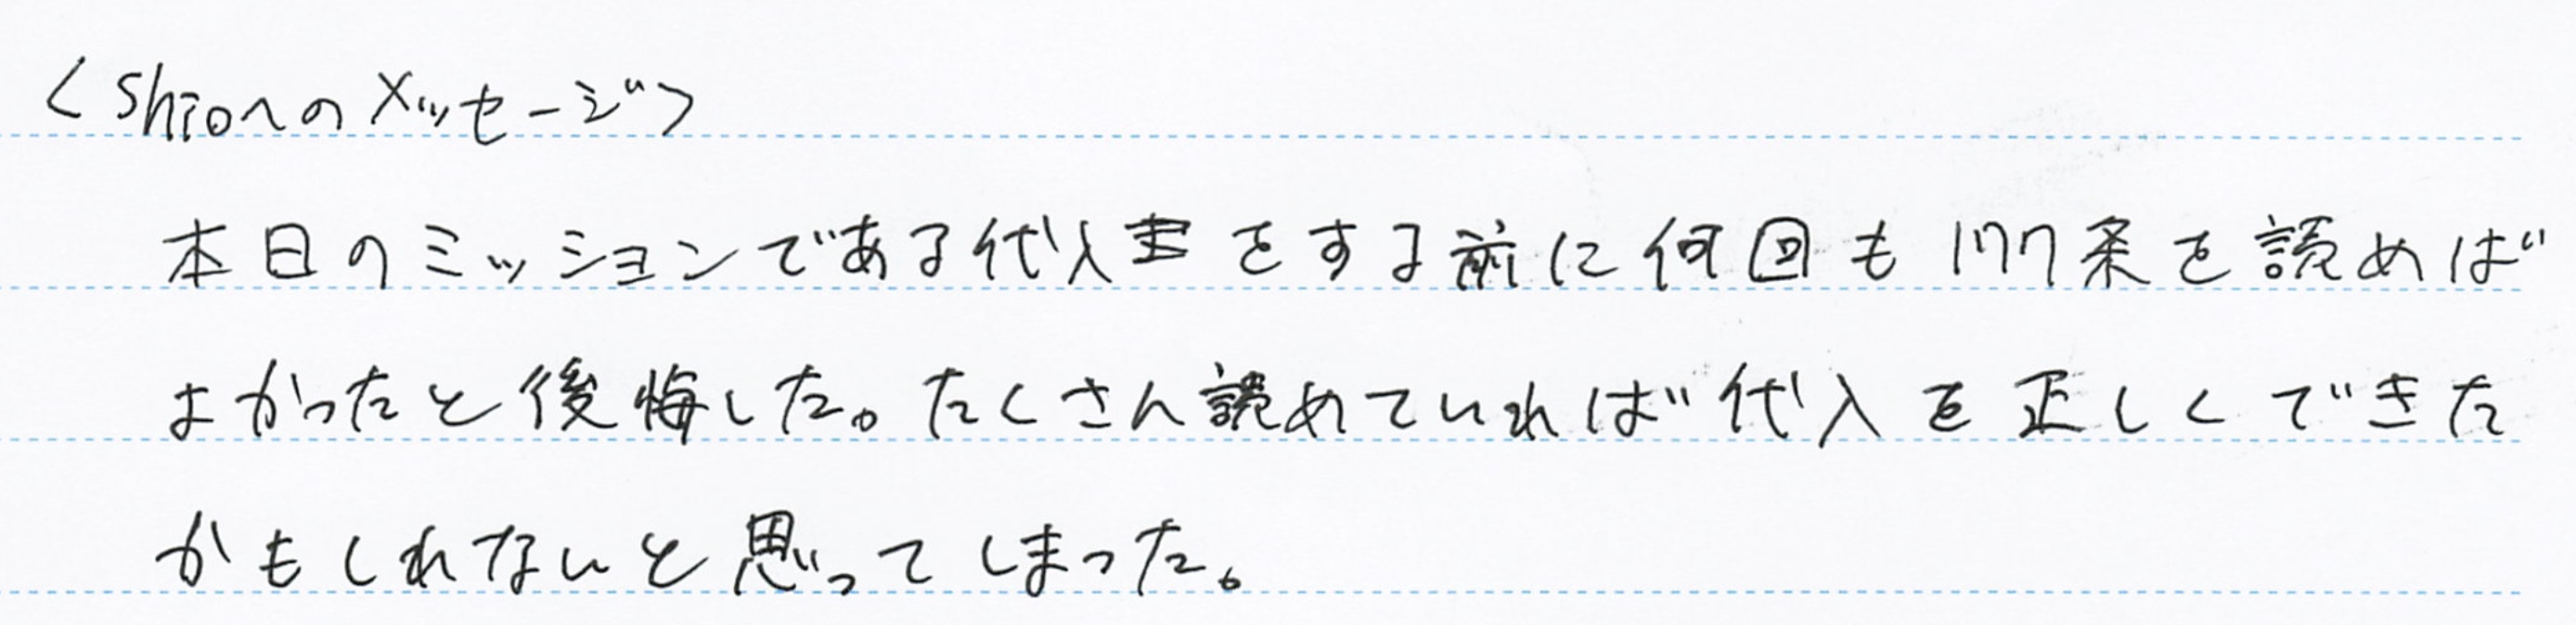 <shioへのメッセージ>
本日のミッションである代入をする前に何回も177条を読めば
よかったと後悔した。たくさん読めていれば代入を正しくできた
かもしれないと思ってしまった。